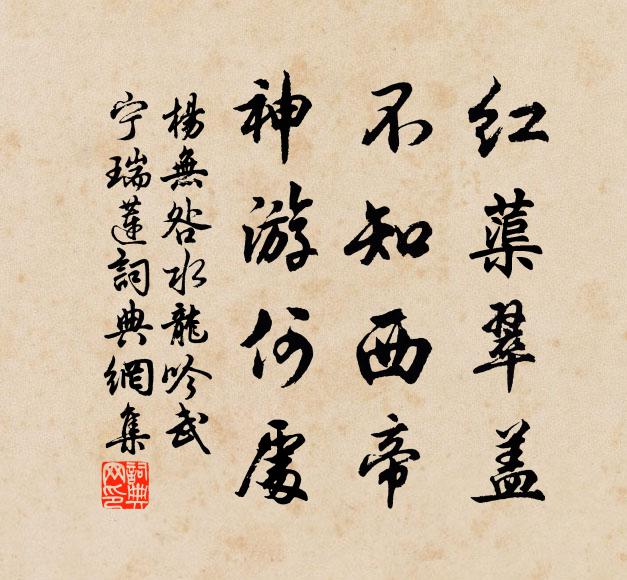 红蕖翠盖
不知西帝
神游何處
楊無咎水龍吟武
宁瑞蓮詞典網集
詞典网印